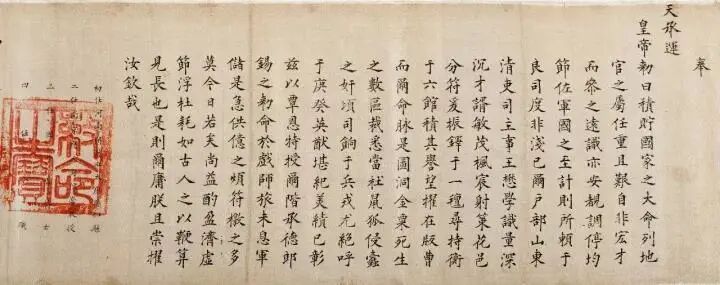 奉
天承運
皇帝勑曰積貯國家之大命列地
官之屬任重且艱自非宏才
而叅之遠識亦安覩調停均
節佐軍國之至計則所賴于
良司度非淺已爾户部山東
清吏司主事王懋學識量深
沉才諝敏茂楓宸射策花邑
分符爰振鐸于一氊尋持衡
于六館積其譽望擢在版曹
而爾命脉是圖洞金粟死生
之數區裁悉當社鼠狐侵蠹
之奸頃司餉于兵戎尤絕呼
于庚癸英猷堪紀美績已彰
兹以覃恩特授爾階承德郎
錫之勑命於戲師旅未息軍
儲是急供億之煩符檄之多
莫今日若矣尚益酌盈濟虛
節浮杜耗如古人之以鞭算
見長也是則爾庸朕且崇擢
汝欽哉
初任河南
二任
三
四
勑命
之寶